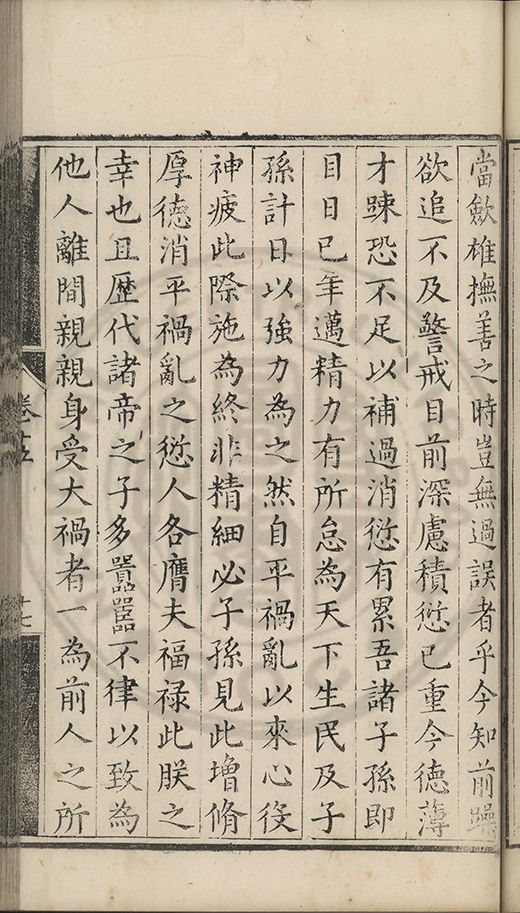 當斂雄撫善之時豈無過誤者乎今知前躁
欲追不及警戒目前深慮積愆已重今德薄
才踈恐不足以補過消愆有累吾諸子孫即
目日已年邁精力有所怠為天下生民及子
孫計日以強力為之然自平禍亂以來心役
神疲此際施為終非精細必子孫見此增脩
厚德消平禍亂之愆人各膺夫福祿此朕之
幸也且歷代諸帝之子多囂囂不律以致為
他人離間親親身受大禍者一為前人之所
卷五
十七